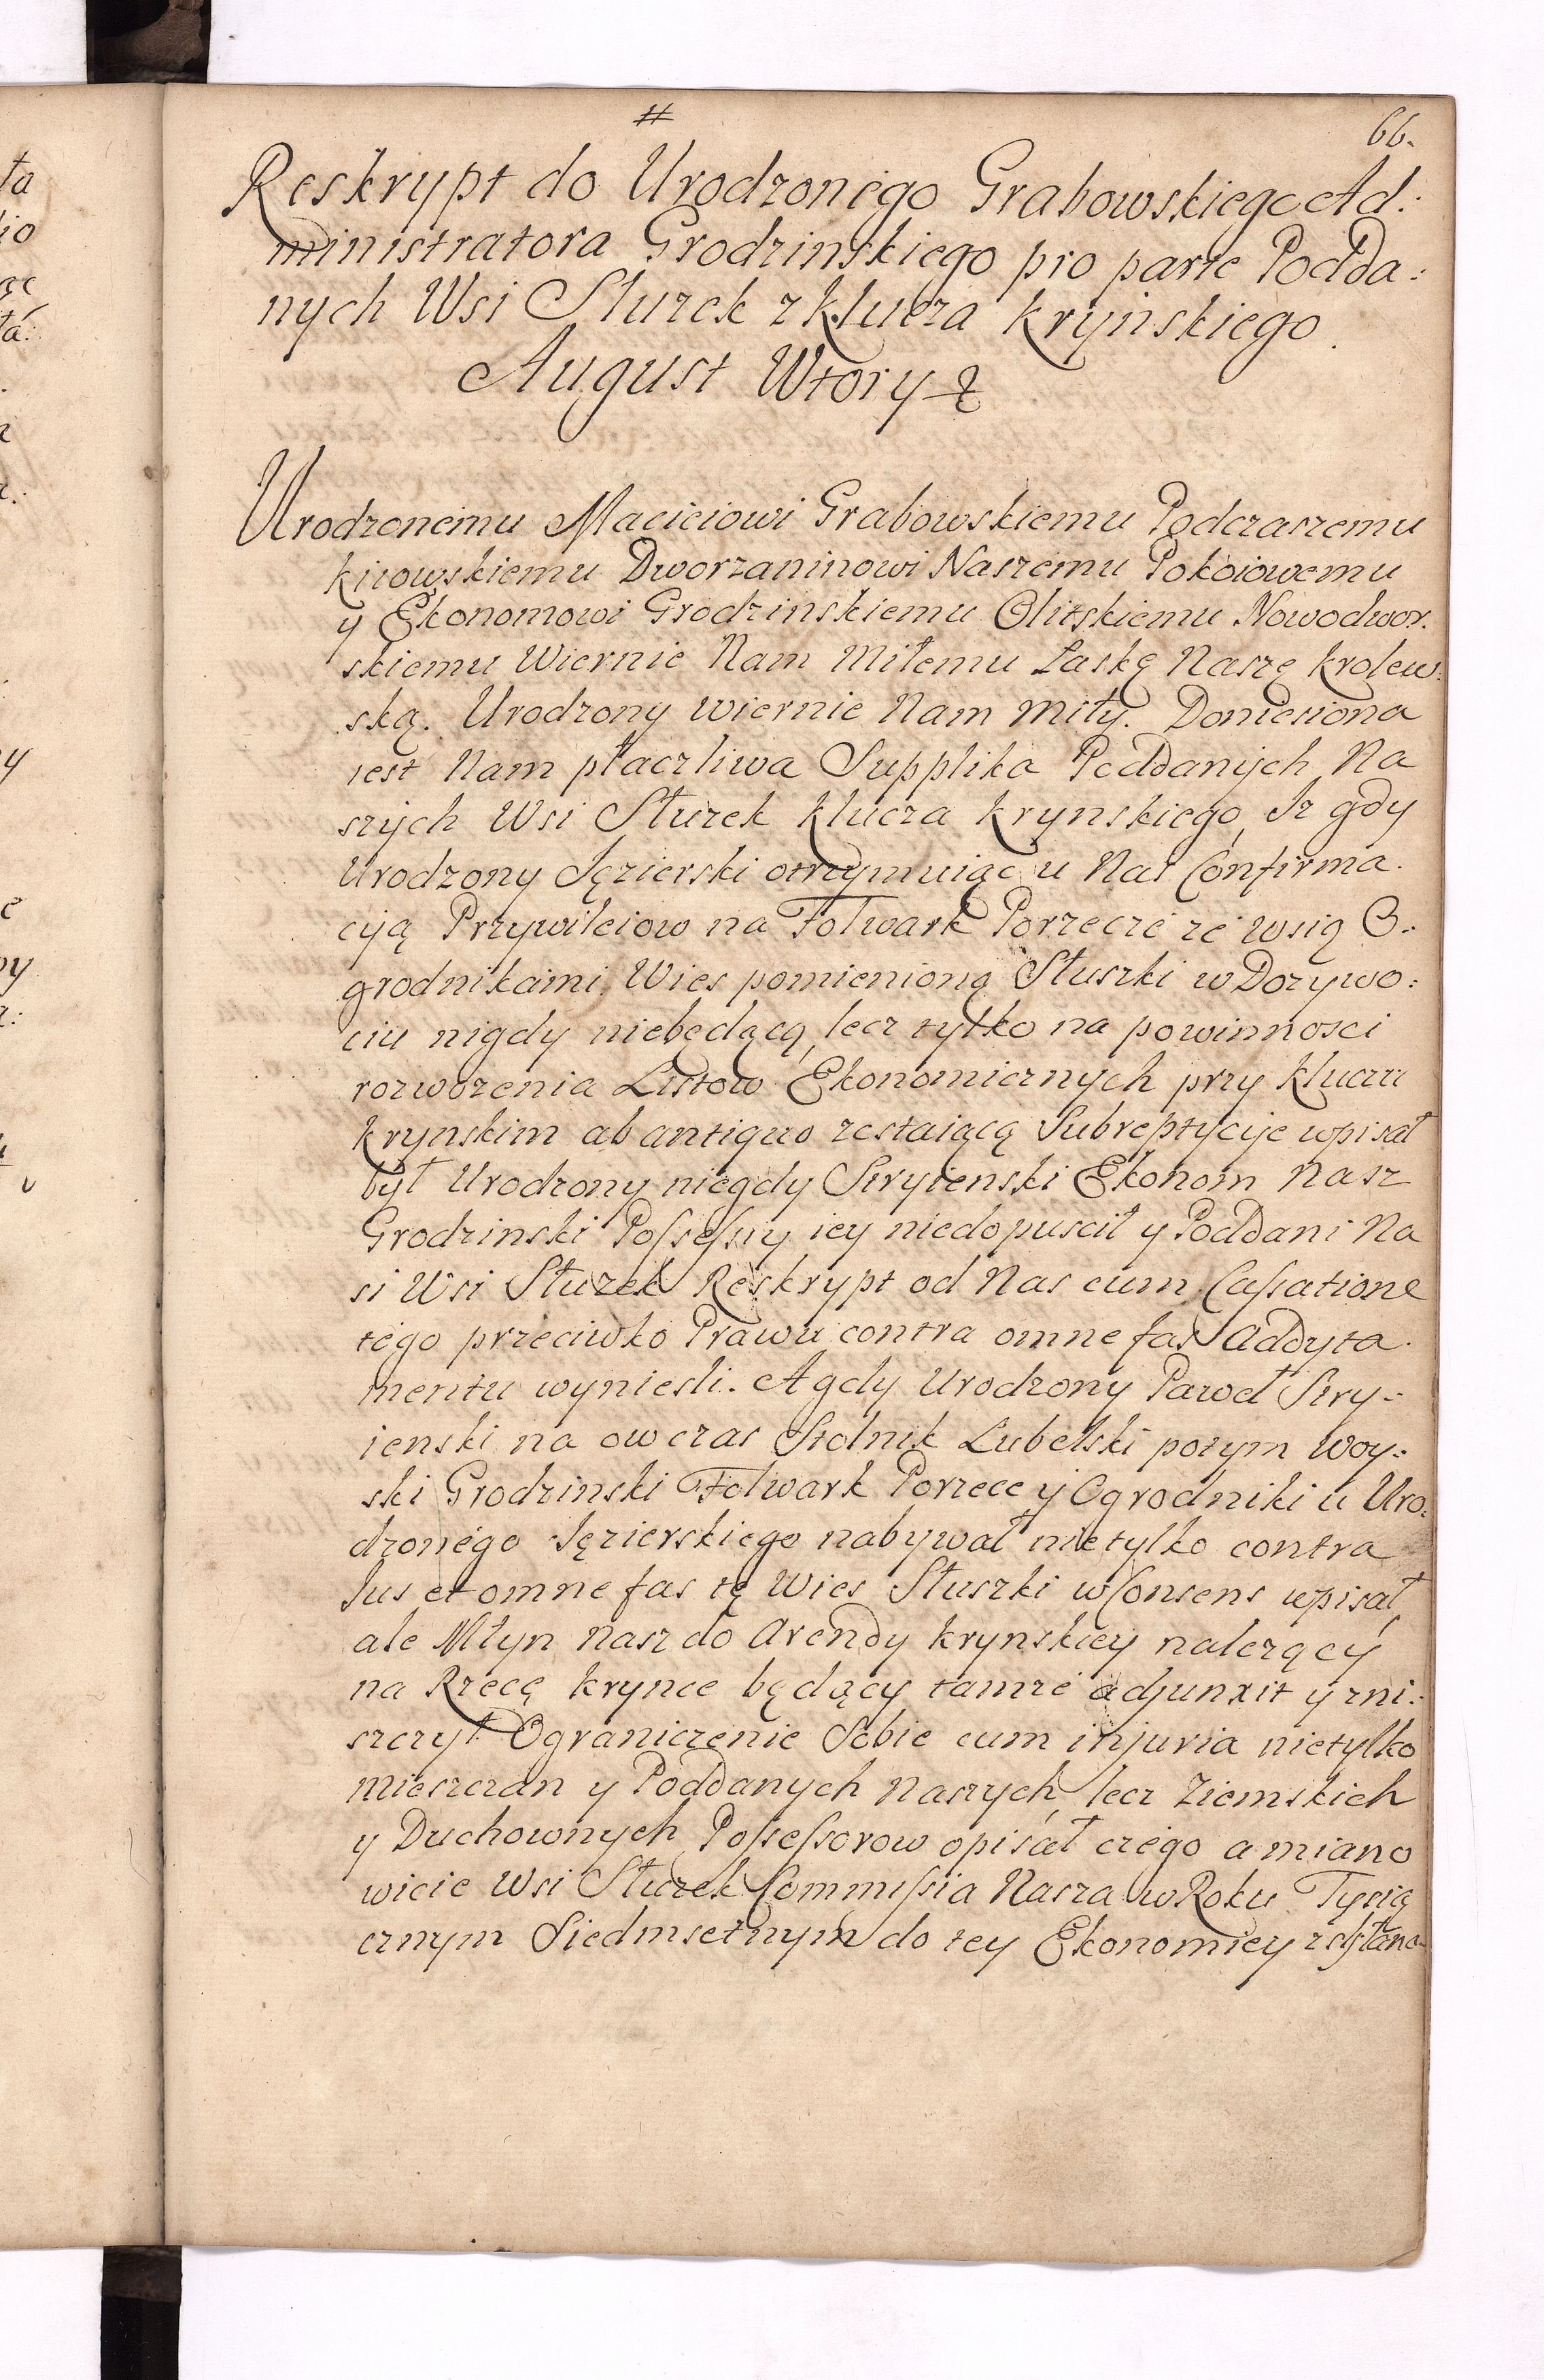 #
66.
Reskrypt do Urodzonego Grabowskiego Ad:
ministratora Grodzinskiego pro parte Podda:
nych Wsi Sturek z Klucza Krynskiego.
August Wtory
Urodzonemu Macieiowi Grabowskiemu Podczaszemu
Kiiowskiemu Dworzaninowi Naszemu Pokoiowemu
y Ekonomowi Grodzinskiemu Olitskiemu Nowodwor.
skiemu Wiernie Nam Miłemu Łaskę Naszę Krolew
ską. Urodzony wiernie Nam miły. Doniesiona
iest Nam płaczliwa Supplika Poddanych Na
szych Wsi Sturek Klucza Krynskiego, Iz gdy
Urodzony Jęzierski otrzymuiąc u Nas Confirma.
cyą Przywileiow na Folwark Porzecze ze wsią O:
grodnikami, Wies pomienioną Stuszki w Dozywo:
ciu nigdy niebędącą, lecz tylko na powinnosci
rozwozenia Listow Ekonomicznych przy Kluczu
Krynskim ab antiquo zostaiącą Subreptycije wpisał
był Urodzony niegdy Stryienski Ekonom Nasz
Grodzinski Possessyy iey niedopuscił y Poddani Na
si Wsi Sturek Reskrypt od Nas cum Cassatione
tego przeciwko Prawu contra omne fas Addyta.
mentu wyniesli. A gdy Urodzony Paweł Stry-
ienski na ow czas Stolnik Lubelski potym Woy:
ski Grodzinski Folwark Porzece y Ogrodniki u Uro.
dzonego Jęzierskiego nabywał nietylko contra
Jus et omne fas tę Wies Stuszki w Consens wpisał,
ale Młyn nasz do Arendy Krynskiey nalezący
na Rzecę Krynce będący tamze adjunxit y zni:
szczył Ograniczenie Sobie cum injuria nietylko
mieszczan y Poddanych naszych, lecz Ziemskich
y Duchownych Possessorow opisał czego a miano
wicie Wsi Sturek Commissia Nasza w Roku Tysią
cznym Siedmsetnym do tey Ekonomiey